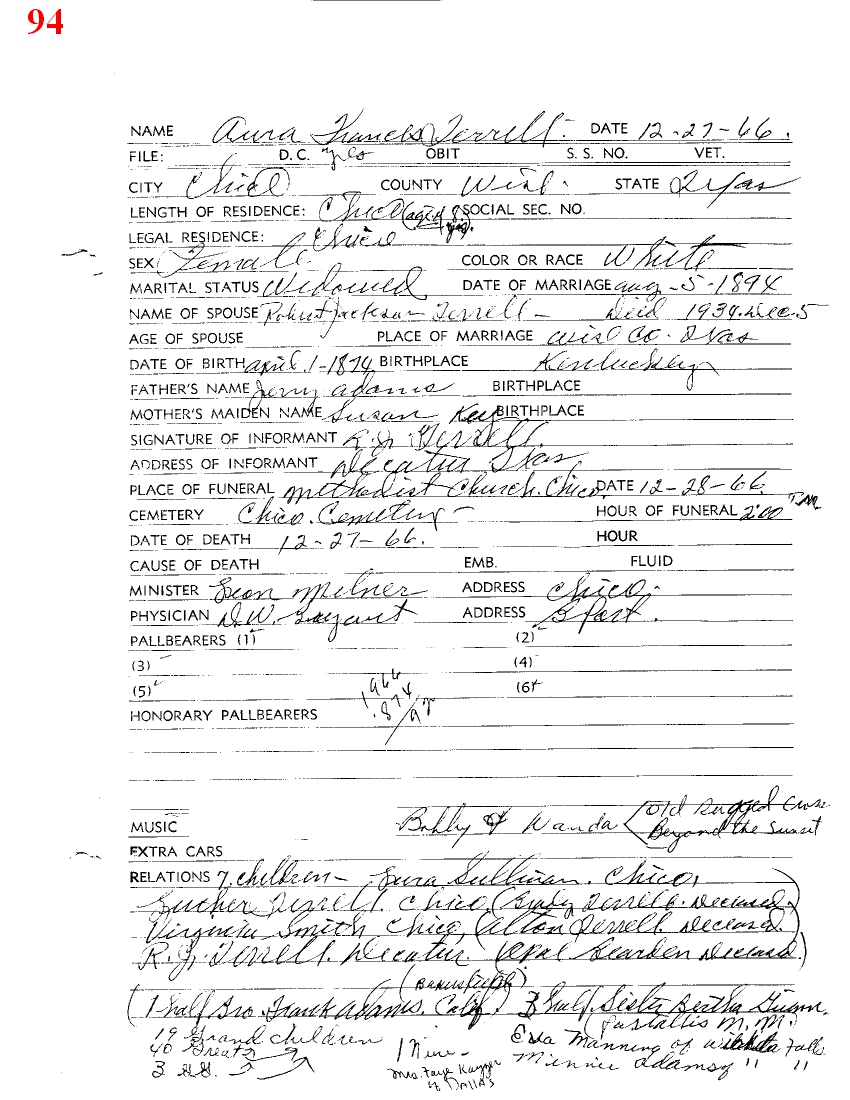 94
NAME Aura Francis Terrell - DATE 12-27-66.
FILE: D.C. yes OBIT S. S. NO. VET.
CITY Chico COUNTY Wise STATE Texas
LENGTH OF RESIDENCE: Chico (age of 8 yrs). SOCIAL SEC. NO.
LEGAL RESIDENCE: Chico
SEX Female COLOR OR RACE White
MARITAL STATUS Widowed DATE OF MARRIAGE Aug-5-1894
NAME OF SPOUSE Robert Jackson Terrell - Died 1934. Dec. 5
AGE OF SPOUSE PLACE OF MARRIAGE Wise Co. Texas
DATE OF BIRTH April 1-1874 BIRTHPLACE Kentuckey
FATHER'S NAME Jerry Adams BIRTHPLACE
MOTHER'S MAIDEN NAME Susan Key BIRTHPLACE
SIGNATURE OF INFORMANT R.J. Terrell.
ADDRESS OF INFORMANT Decatur Texas
PLACE OF FUNERAL Methodist Church. Chico DATE 12-28-66.
CEMETERY Chico Cemetery - HOUR OF FUNERAL 2:00 P.M.
DATE OF DEATH 12-27-66. HOUR
CAUSE OF DEATH EMB. FLUID
MINISTER Leon Milner ADDRESS Chico.
PHYSICIAN ADDRESS
PALLBEARERS (1) (2)
(3) (4)
(5) (6)
1966
1874/92
HONORARY PALLBEARERS
MUSIC Bobby & Wanda Old Rugged Cross
Beyond the Sunset
EXTRA CARS
RELATIONS 7 children - Lura Sullivan. Chico,
Luther Terrell. Chico, (Brady Terrell. Deceased.)
Virginia Smith Chico, (Alton Terrell. Deceased.)
R.J. Terrell. Decatur. (Opal Bearden Deceased)
(1 half Bro. Frank Adams. Calif) (Bakersfield) 3 half Sister Bertha Guinn.
(Portallis N.M.)
19 Grand children
40 Great
3 GG.
1 Niece -
Mrs. Faye
of Dallas
Eva Manning of Wichita Falls
Minnie Adams of " "